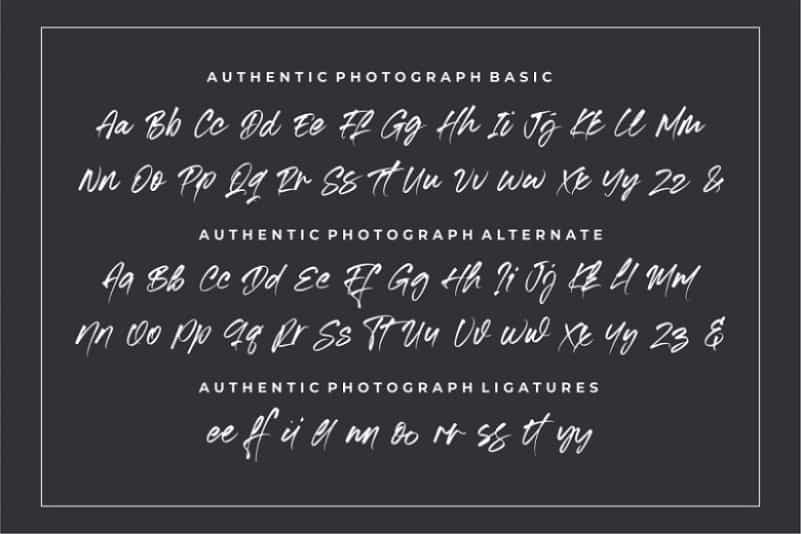 AUTHENTIC PHOTOGRAPH BASIC
Aa Bb Cc Dd Ee Ff Gg Hh Ii Jj Kk Ll Mm
Nn Oo Pp Qq Rr Ss Tt Uu Vv Ww Xx Yy Zz &
AUTHENTIC PHOTOGRAPH ALTERNATE
Aa Bb Cc Dd Ee Ff Gg Hh Ii Jj Kk Ll Mm
Nn Oo Pp Qq Rr Ss Tt Uu Vv Ww Xx Yy Zz &
AUTHENTIC PHOTOGRAPH LIGATURES
ee ff ii ll nn oo rr ss tt yy